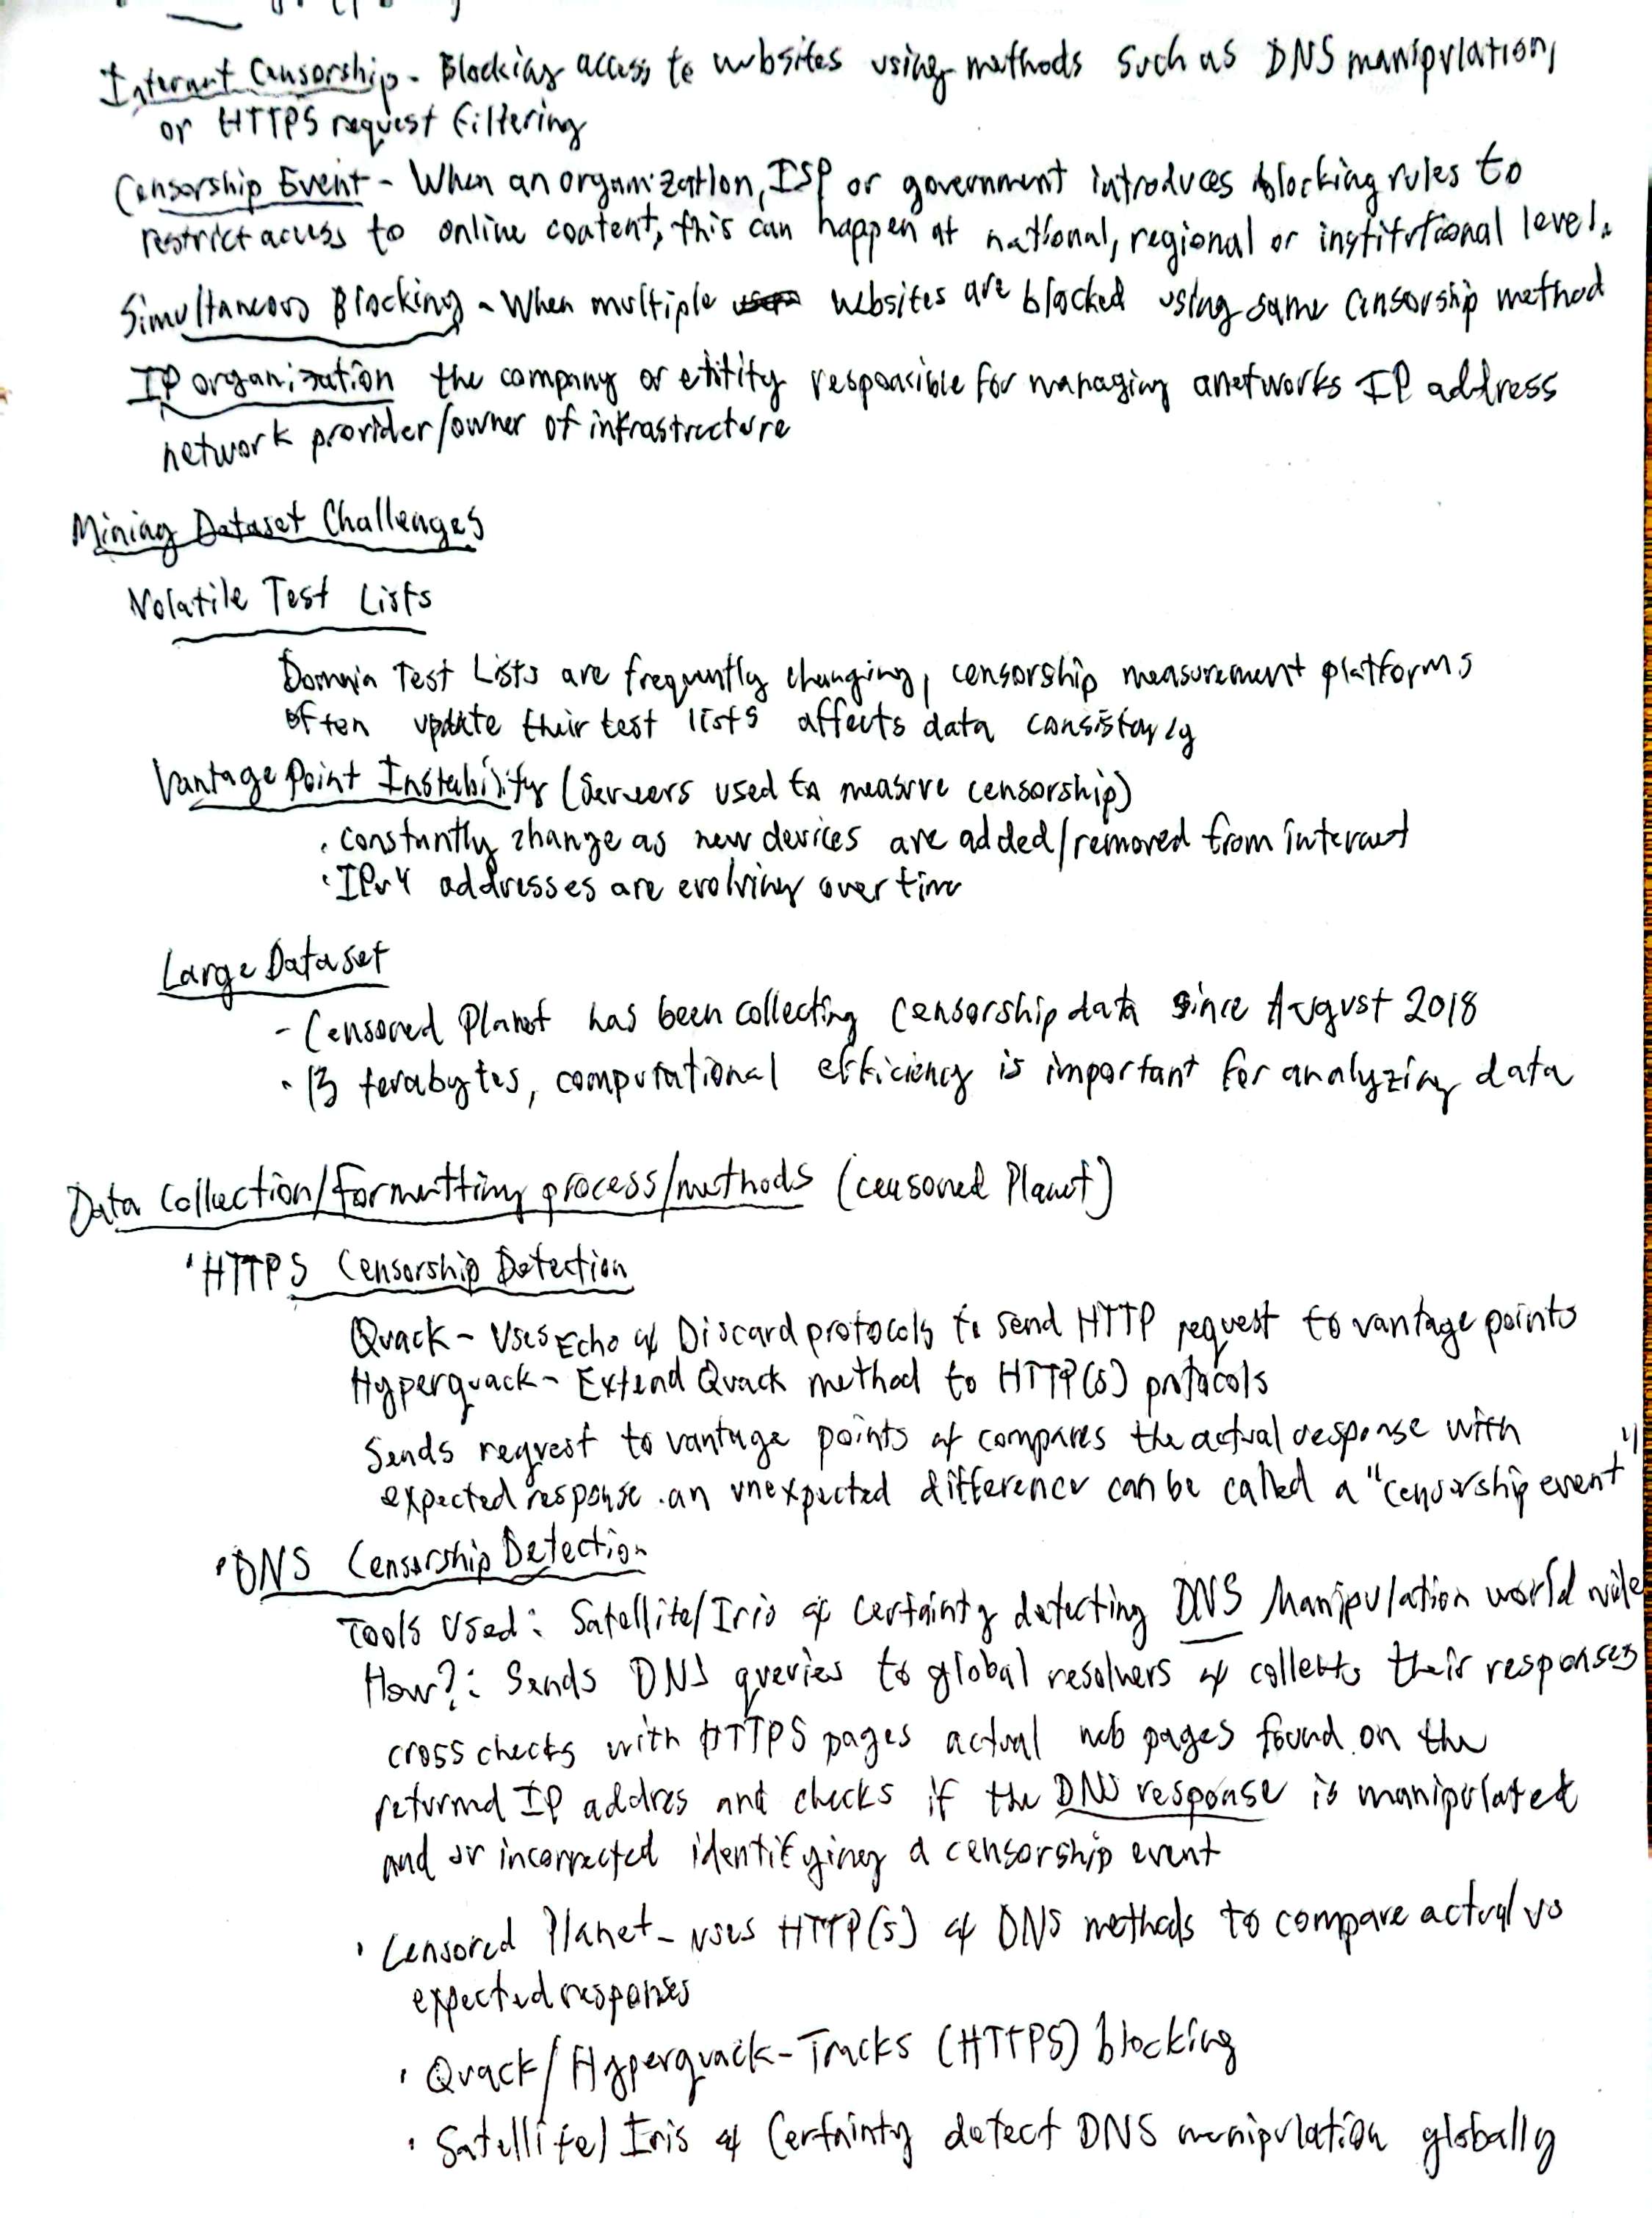 Internet Censorship - Blocking access to websites using methods such as DNS manipulation,
or HTTPS request filtering
Censorship Event - When an organization, ISP or government introduces blocking rules to
restrict access to online content, this can happen at national, regional or institutional level.
Simultaneous Blocking - When multiple websites are blocked using same censorship method
IP organization the company or entity responsible for managing a networks IP address
network provider/owner of infrastructure
Mining Dataset Challenges
Volatile Test Lists
Domain Test Lists are frequently changing, censorship measurement platforms
often update their test lists affects data
Vantage Point Instability (Servers used to measure censorship)
· constantly change as new devices are added/removed from internet
· IPv4 addresses are evolving over time
Large Dataset
- Censored Planet has been collecting censorship data since August 2018
· 13 terabytes, computational efficiency is important for analyzing data
Data Collection/formatting process/methods (censored Planet)
· HTTPS Censorship Detection
Quack - Uses Echo & Discard protocols to send HTTP request to vantage points
Hyperquack - Extend Quack method to HTTP(s) protocols
Sends request to vantage points & compares the actual response with
expected response. an unexpected difference can be called a "censorship event"
· DNS Censorship Detection
Tools Used: Satellite/Iris & Certainty detecting DNS Manipulation world wide
How?: Sends DNS queries to global resolvers & collects their responses
cross checks with HTTPS pages actual web pages found on the
returned IP addres and checks if the DNS response is manipulated
and or incorrected identifying a censorship event
· Censored Planet - uses HTTP(s) & DNS methods to compare actual vs
expected responses
· Quack/Hyperquack - Tracks (HTTPS) blocking
· Satellite/Iris & Certainty detect DNS manipulation globally